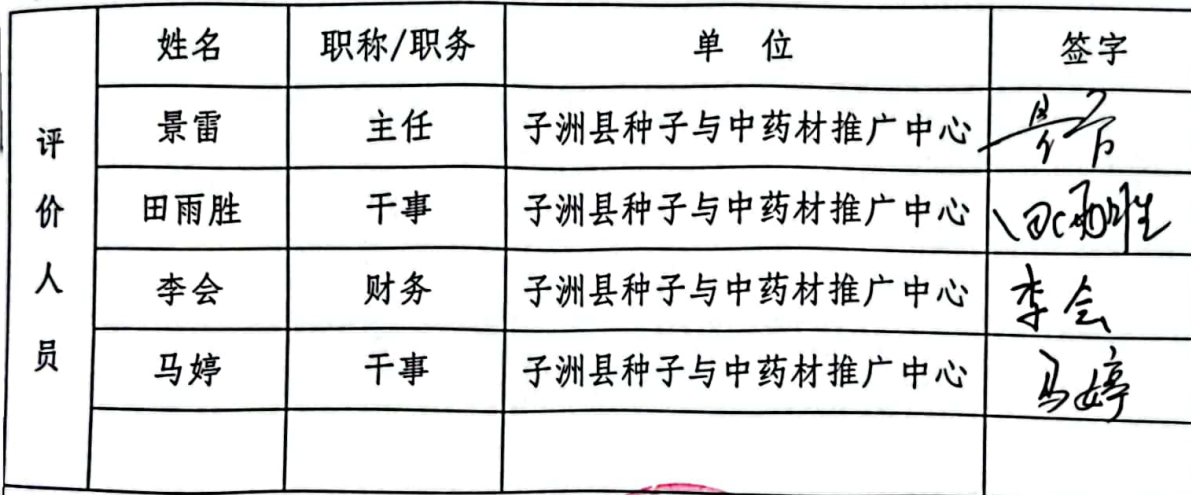 评价人员
姓名 职称/职务 单 位 签字
景雷 主任 子洲县种子与中药材推广中心
田雨胜 干事 子洲县种子与中药材推广中心 田雨胜
李会 财务 子洲县种子与中药材推广中心 李会
马婷 干事 子洲县种子与中药材推广中心 马婷